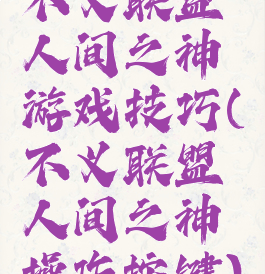 不义联盟
人间之神
游戏技巧(
不义联盟
人间之神
操作按键)